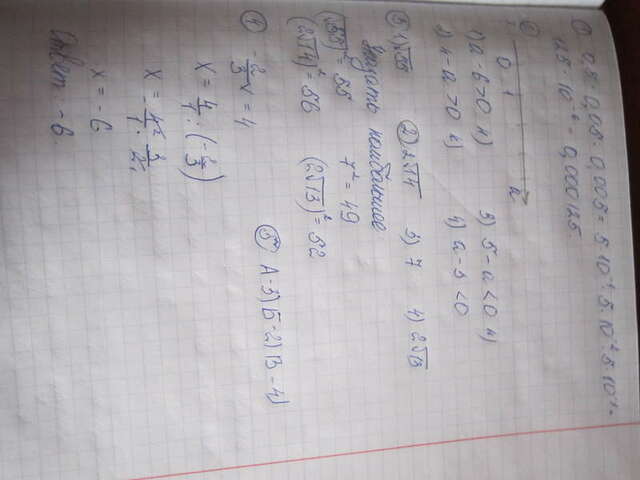 ① 0,5 · 0,05 · 0,005 = 5 · 10⁻¹ · 5 · 10⁻² · 5 · 10⁻³ =
125 · 10⁻⁶ = 0,000125.
②
0 1 a
1) a - 6 > 0 н) 3) 5 - a < 0 н)
2) 4 - a > 0 н) 4) a - 3 < 0
③ 1) √55 ② 2√14 3) 7 4) 2√13
Указать наибольшее
(√55)² = 55 7² = 49
(2√14)² = 56 (2√13)² = 52
④ -2/3 x = 4 ⑤ А-3) Б-2) В-4)
x = 4/1 : (-2/3)
x = -4²/1 · 3/2₁
x = -6
Ответ: -6.